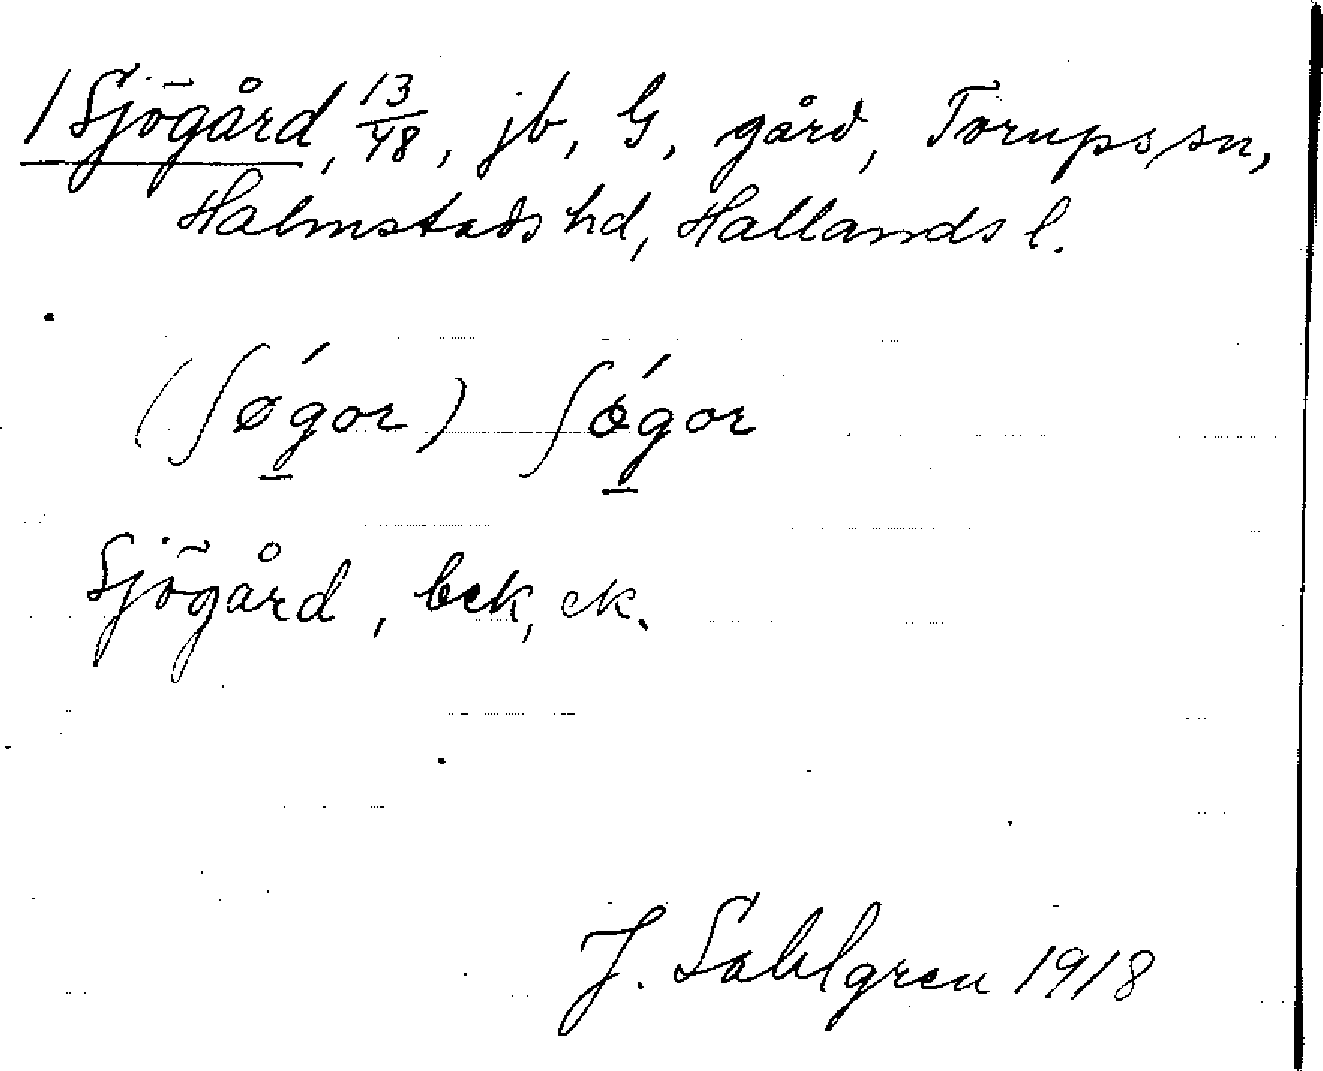 / Sjögård, 13/48, jb, G, gård, Torups sn,
Halmstads hd, Hallands l.
(ʃǿgor) ʃǿgor
Sjögård, bek, ek.
J. Sahlgren 1918